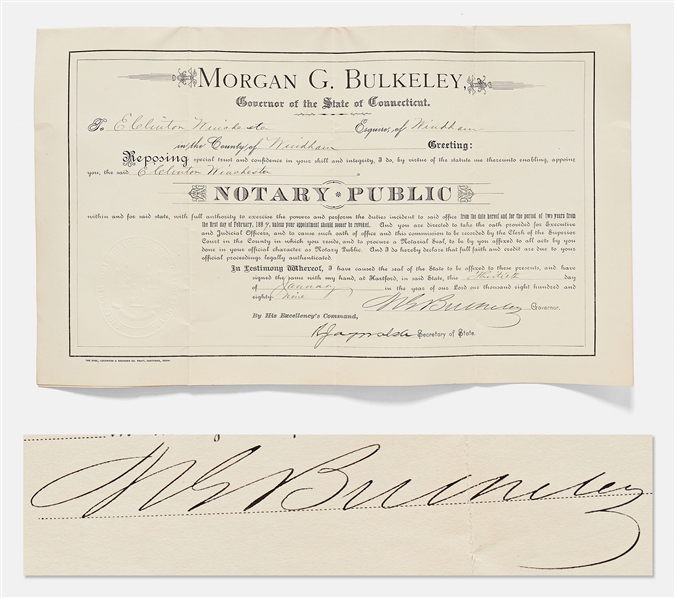 MORGAN G. BULKELEY,
Governor of the State of Connecticut.
To E Clinton Winchester Esquire, of Windham
in the County of Windham Greeting:
Reposing special trust and confidence in your skill and integrity, I do, by virtue of the statute me thereunto enabling, appoint
you, the said E Clinton Winchester
NOTARY PUBLIC
within and for said state, with full authority to exercise the powers and perform the duties incident to said office from the date hereof and for the period of two years from
the first day of February, 1889, unless your appointment should sooner be revoked. And you are directed to take the oath provided for Executive
and Judicial Officers, and to cause such oath of office and this commission to be recorded by the Clerk of the Superior
Court in the County in which you reside, and to procure a Notarial Seal, to be by you affixed to all acts by you
done in your official character as Notary Public. And I do hereby declare that full faith and credit are due to your
official proceedings legally authenticated.
In Testimony Whereof, I have caused the seal of the State to be affixed to these presents, and have
signed the same with my hand, at Hartford, in said State, this thirtieth day
of January in the year of our Lord one thousand eight hundred and
eighty nine
M G Bulkeley Governor.
By His Excellency's Command,
Secretary of State.
M G Bulkeley